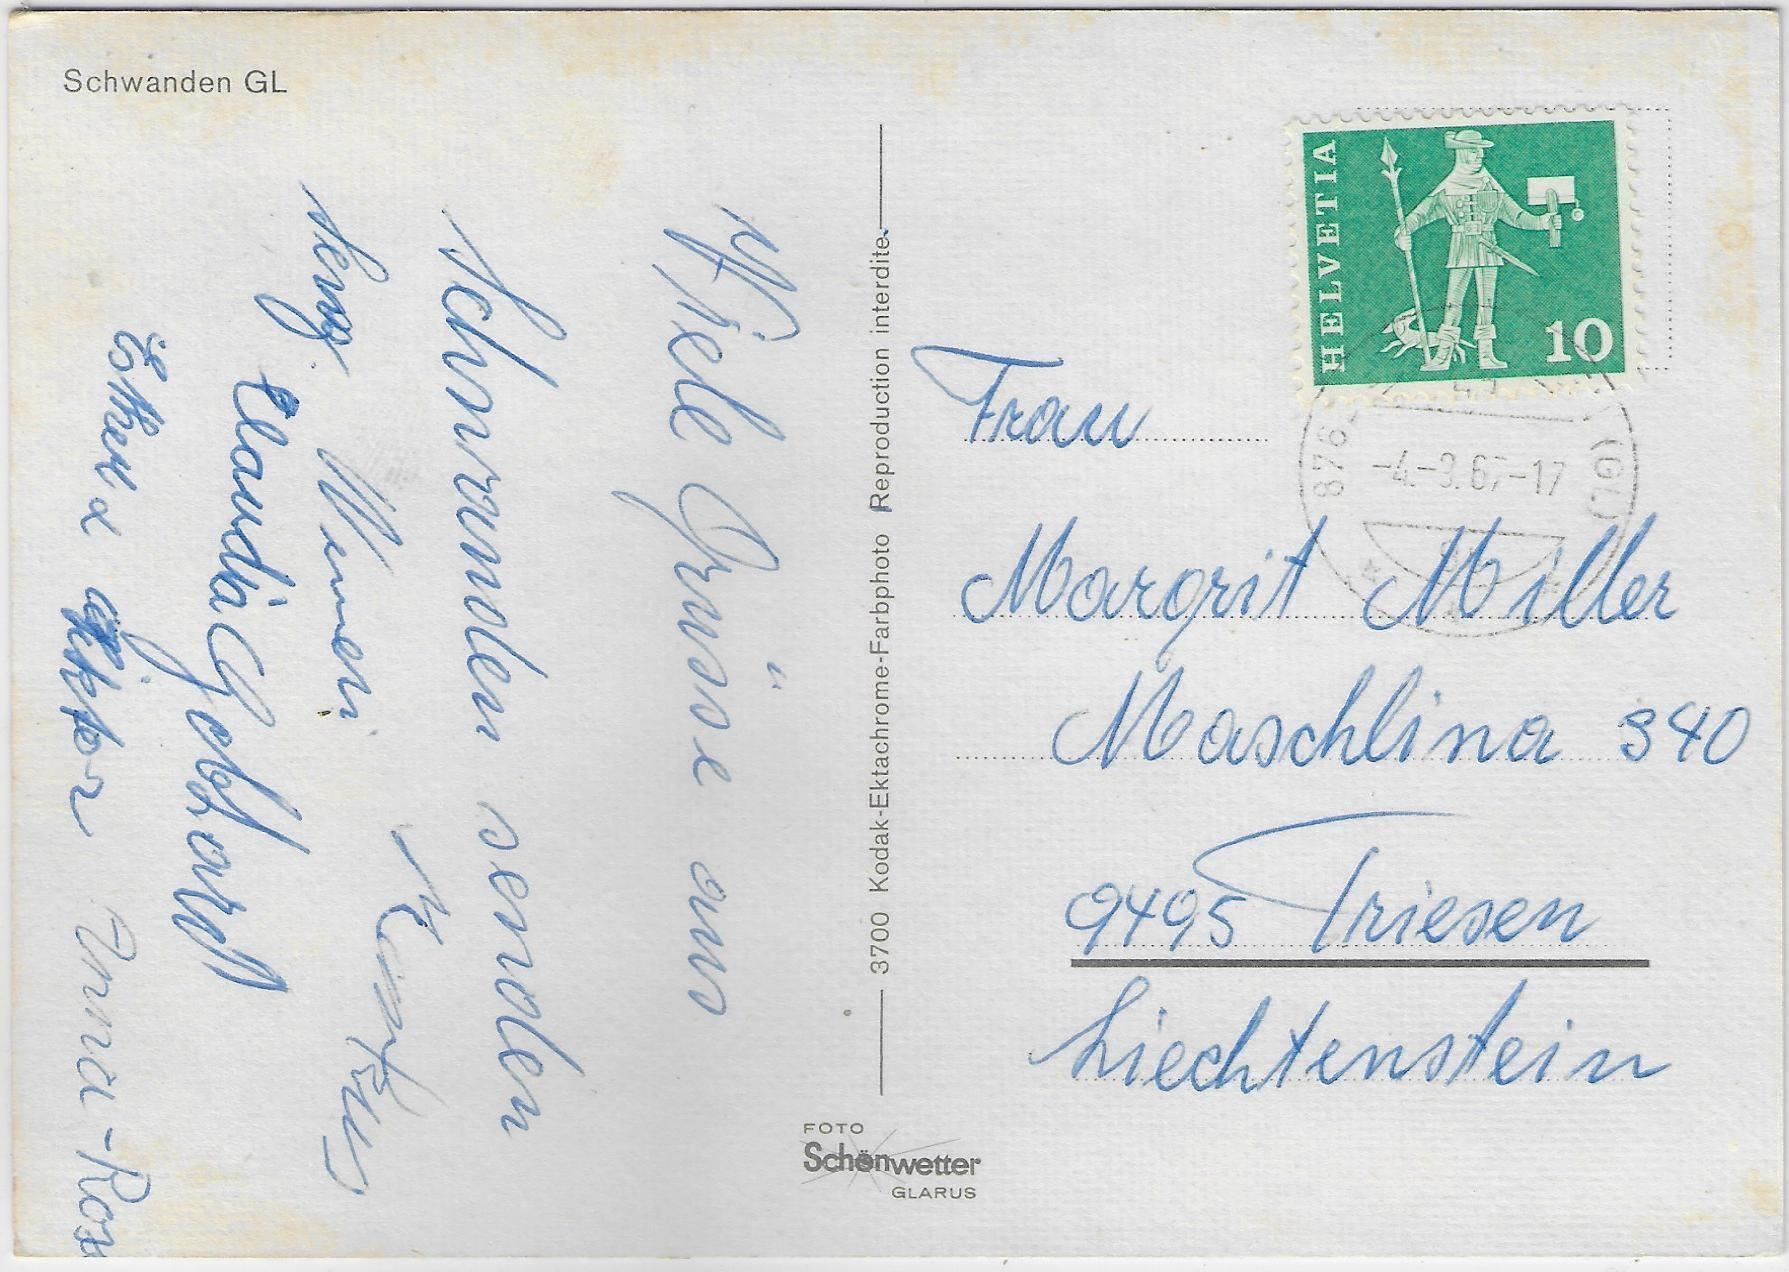 Schwanden GL
Viele Grüsse aus
Schwanden senden
Claudia Gotthard
Anna-Rosa
3700 Kodak-Ektachrome-Farbphoto Reproduction interdite
FOTO
Schönwetter
GLARUS
HELVETIA
10
876
-4.-9.67-17
(GL)
Frau
Margrit Miller
Maschlina 340
9495 Triesen
Liechtenstein